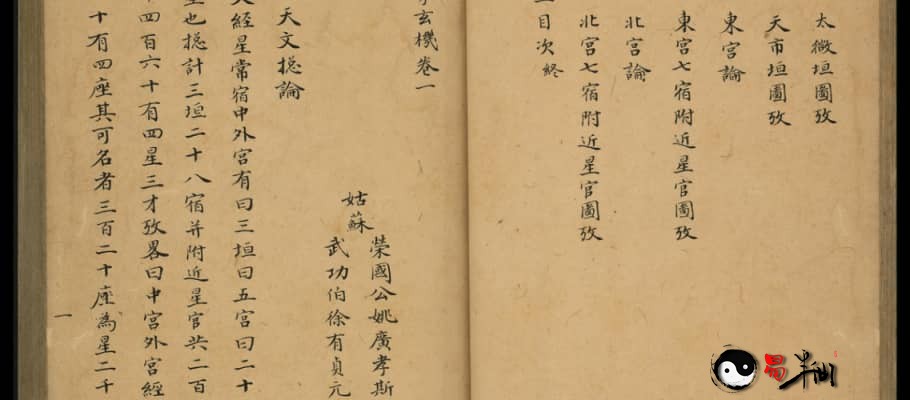 太微垣圖攷
天市垣圖攷
東宮論
東宮七宿附近星官圖攷
北宮論
北宮七宿附近星官圖攷
目次終
玄機卷一
姑蘇
榮國公姚廣孝斯
武功伯徐有貞元
天文摠論
經星常宿中外宮有曰三垣曰五宮曰二十
也摠計三垣二十八宿并附近星官共二百
四百六十有四星三才攷畧曰中宮外宮經
十有四座其可名者三百二十座為星二千
一
易半仙